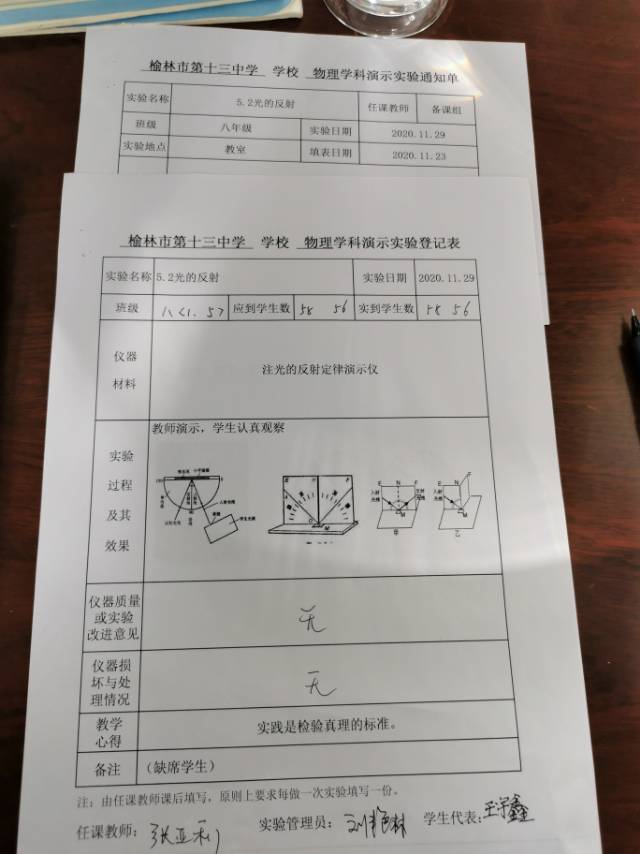 榆林市第十三中学 学校 物理学科演示实验通知单
实验名称 5.2光的反射 任课教师 备课组
班级 八年级 实验日期 2020.11.29
实验地点 教室 填表日期 2020.11.23
榆林市第十三中学 学校 物理学科演示实验登记表
实验名称 5.2光的反射 实验日期 2020.11.29
班级 八<1. 5> 应到学生数 58 56 实到学生数 58 56
仪器
材料
注光的反射定律演示仪
实验
过程
及其
效果
教师演示，学生认真观察
E N F
入射
光线
M
甲
E N F
入射
光线
M
乙
仪器质量
或实验
改进意见
无
仪器损
坏与处
理情况
无
教学
心得
实践是检验真理的标准。
备注 (缺席学生)
注：由任课教师课后填写，原则上要求每做一次实验填写一份。
任课教师： 张亚利 实验管理员： 学生代表：